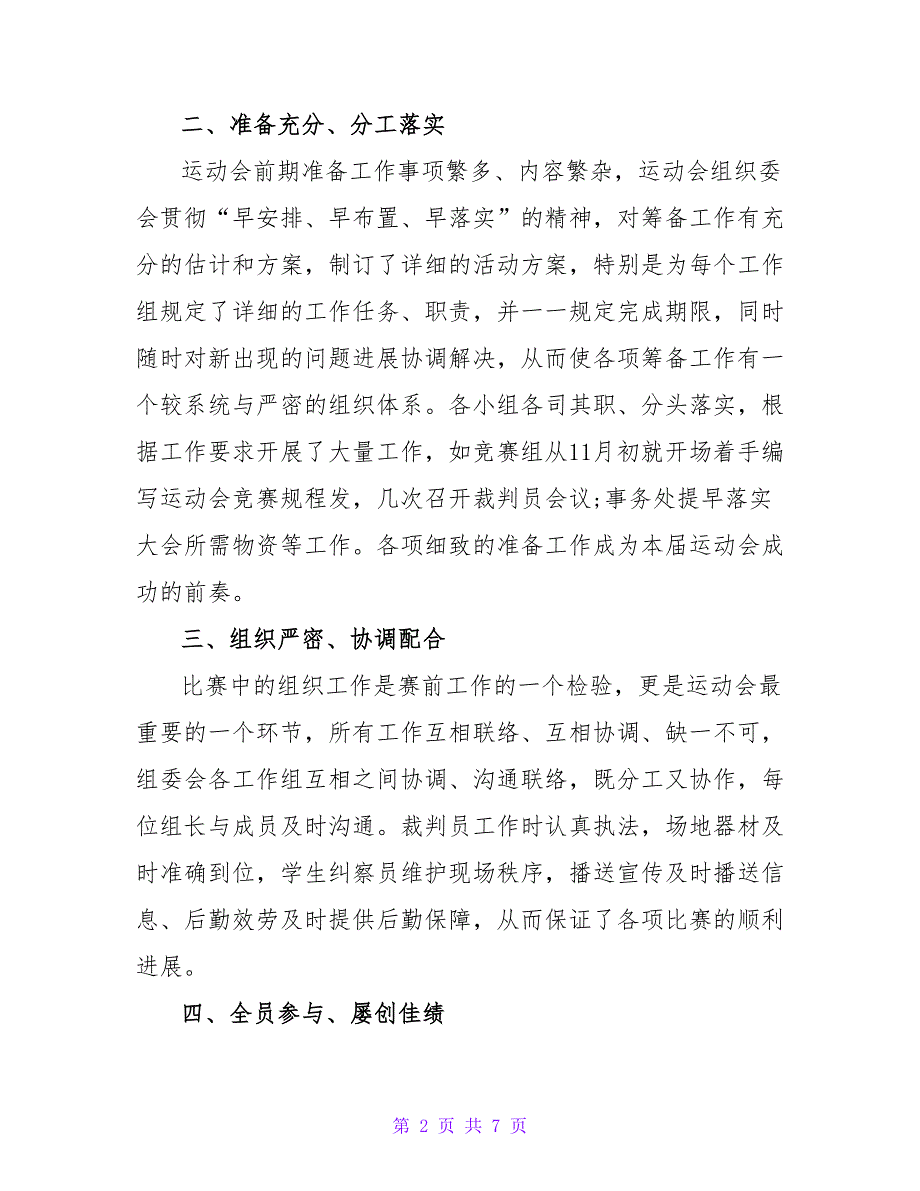 二、准备充分、分工落实
运动会前期准备工作事项繁多、内容繁杂，运动会组织委
会贯彻“早安排、早布置、早落实”的精神，对筹备工作有充
分的估计和方案，制订了详细的活动方案，特别是为每个工作
组规定了详细的工作任务、职责，并一一规定完成期限，同时
随时对新出现的问题进展协调解决，从而使各项筹备工作有一
个较系统与严密的组织体系。各小组各司其职、分头落实，根
据工作要求开展了大量工作，如竞赛组从11月初就开场着手编
写运动会竞赛规程发，几次召开裁判员会议;事务处提早落实
大会所需物资等工作。各项细致的准备工作成为本届运动会成
功的前奏。
三、组织严密、协调配合
比赛中的组织工作是赛前工作的一个检验，更是运动会最
重要的一个环节，所有工作互相联络、互相协调、缺一不可，
组委会各工作组互相之间协调、沟通联络，既分工又协作，每
位组长与成员及时沟通。裁判员工作时认真执法，场地器材及
时准确到位，学生纠察员维护现场秩序，播送宣传及时播送信
息、后勤效劳及时提供后勤保障，从而保证了各项比赛的顺利
进展。
四、全员参与、屡创佳绩
第 2 页 共 7 页